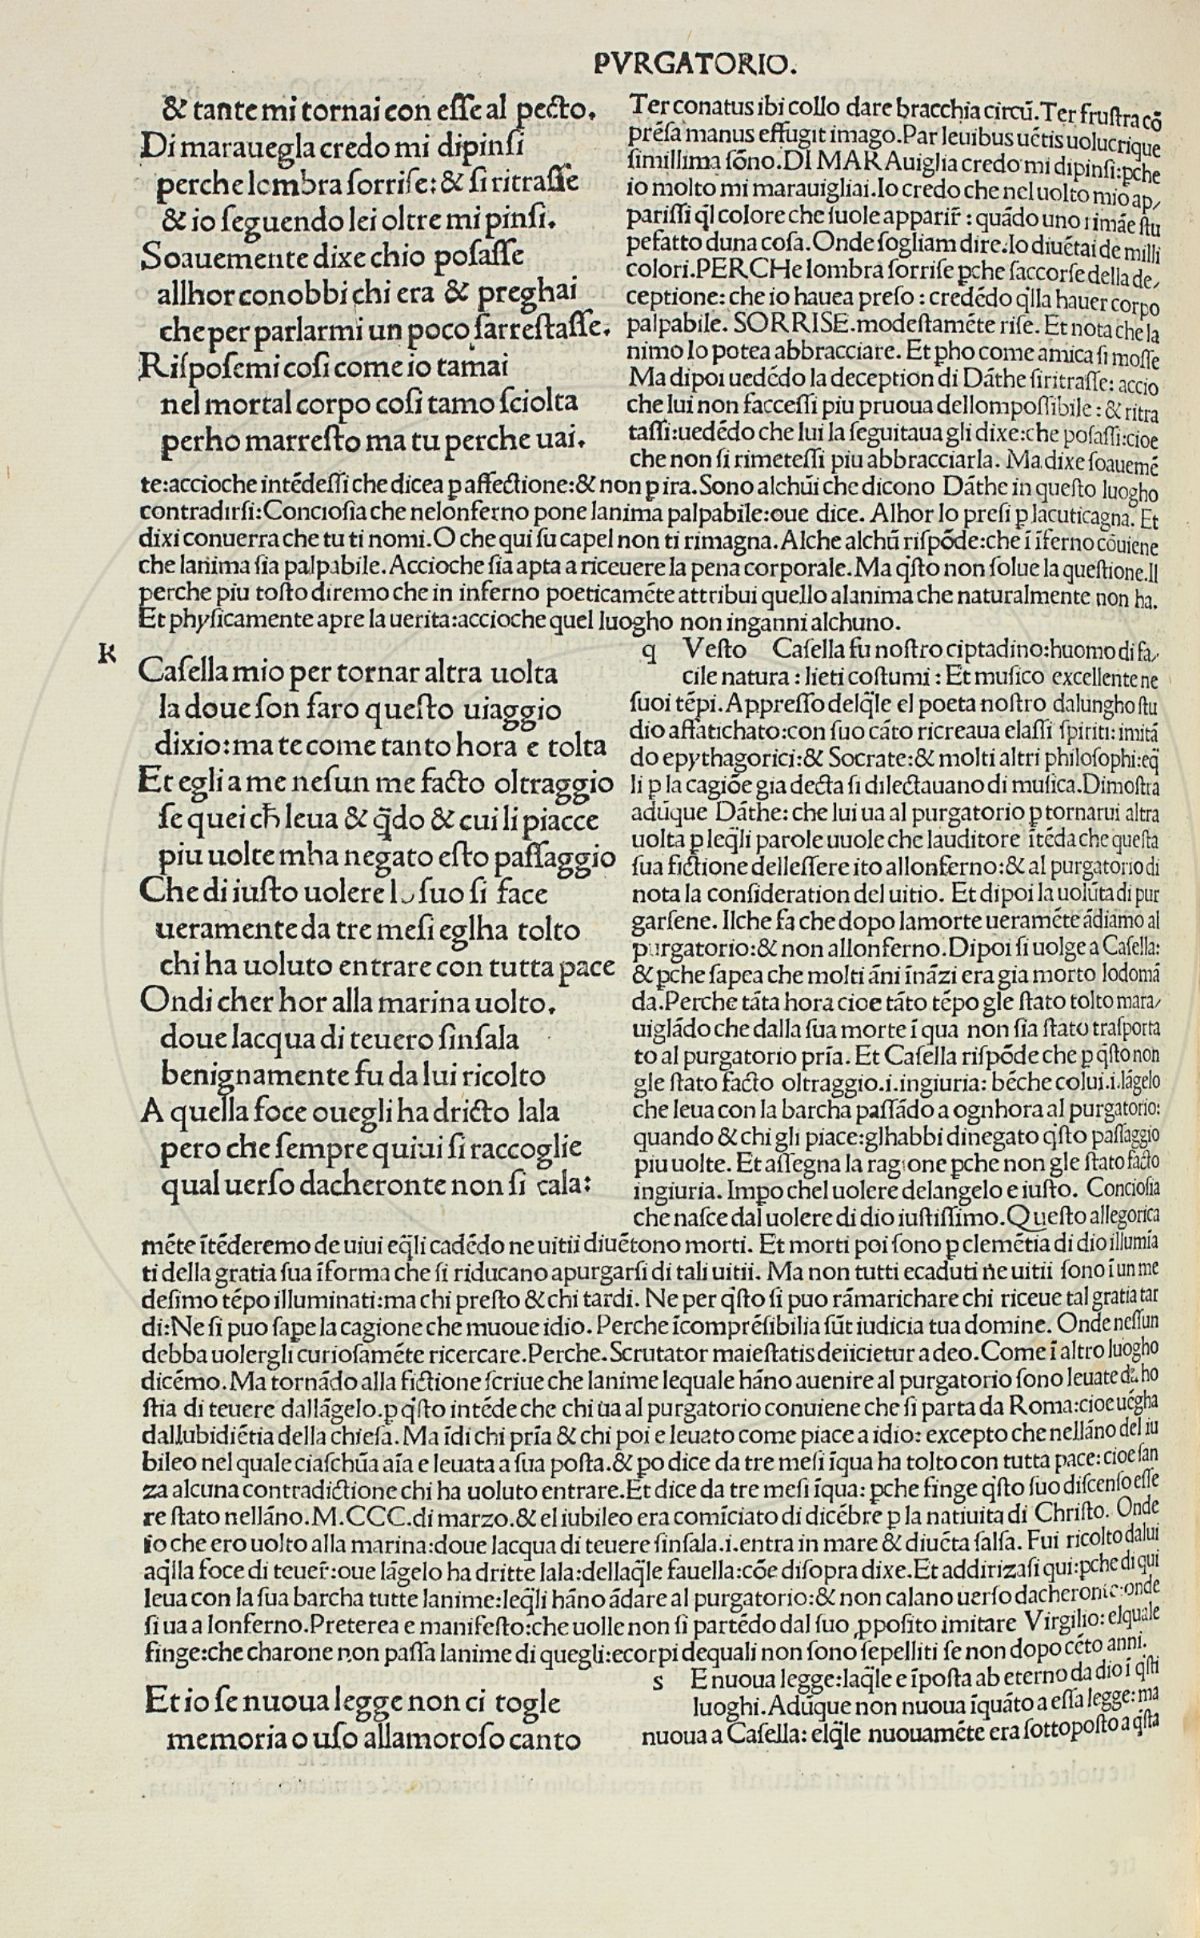 PVRGATORIO.
& tante mi tornai con eſſe al pecto.
Di marauegla credo mi dipinſi
perche lombra ſorriſe: & ſi ritraſſe
& io ſeguendo lei oltre mi pinſi.
Soauemente dixe chio poſaſſe
allhor conobbi chi era & preghai
che per parlarmi un poco ſarreſtaſſe.
Riſpoſemi coſi come io tamai
nel mortal corpo coſi tamo ſciolta
perho marreſto ma tu perche uai.
Ter conatus ibi collo dare bracchia circū. Ter fruſtra cō
prēſa manus effugit imago. Par leuibus uētis uolucrique
ſimillima ſōno. DI MARAuiglia credo mi dipinſi: ꝑche
io molto mi marauigliai. Io credo che nel uolto mio ap/
pariſſi q̄l colore che ſuole apparir̄: quādo uno rimāe ſtu
pefatto duna coſa. Onde ſogliam dire. Io diuētai de milli
colori. PERCHe lombra ſorriſe ꝑche ſaccorſe della de/
ceptione: che io hauea preſo: credēdo q̄lla hauer corpo
palpabile. SORRISE. modeſtamēte riſe. Et nota che la
nimo lo potea abbracciare. Et ꝑho come amica ſi moſſe
Ma dipoi uedēdo la deception di Dāthe ſiritraſſe: accio
che lui non facceſſi piu pruoua dellompoſſibile: & ritra
taſſi: uedēdo che lui la ſeguitaua gli dixe: che poſaſſi: cioe
che non ſi rimeteſſi piu abbracciarla. Ma dixe ſoauemē
te: accioche intēdeſſi che dicea ꝑ affectione: & non ꝑ ira. Sono alchūi che dicono Dāthe in queſto luogho
contradirſi: Concioſia che nelonferno pone lanima palpabile: oue dice. Alhor lo preſi ꝑ lacuticagna. Et
dixi conuerra che tu ti nomi. O che qui ſu capel non ti rimagna. Alche alchū riſpōde: che ī īferno cōuiene
che lanima ſia palpabile. Accioche ſia apta a riceuere la pena corporale. Ma q̄ſto non ſolue la queſtione. Il
perche piu toſto diremo che in inferno poeticamēte attribui quello alanima che naturalmente non ha.
Et phyſicamente apre la uerita: accioche quel luogho non inganni alchuno.
K
Caſella mio per tornar altra uolta
la doue ſon faro queſto uiaggio
dixio: ma te come tanto hora e tolta
Et egli a me neſun me facto oltraggio
ſe quei cħ leua & q̄do & cui li piacce
piu uolte mha negato eſto paſſaggio
Che di iuſto uolere lo ſuo ſi face
ueramente da tre meſi eglha tolto
chi ha uoluto entrare con tutta pace
Ondi cher hor alla marina uolto.
doue lacqua di teuero ſinſala
benignamente fu da lui ricolto
A quella foce ouegli ha dricto lala
pero che ſempre quiui ſi raccoglie
qual uerſo dacheronte non ſi cala:
q Veſto Caſella fu noſtro ciptadino: huomo di fa/
cile natura: lieti coſtumi: Et muſico excellente ne
ſuoi tēpi. Appreſſo delq̄le el poeta noſtro dalungho ſtu
dio affatichato: con ſuo cāto ricreaua elaſſi ſpiriti: imitā
do epythagorici: & Socrate: & molti altri philoſophi: eq̄
li ꝑ la cagiōe gia decta ſi dilectauano di muſica. Dimoſtra
adūque Dāthe: che lui ua al purgatorio ꝑ tornarui altra
uolta ꝑ leq̄li parole uuole che lauditore ītēda che queſta
ſua fictione delleſſere ito allonferno: & al purgatorio di
nota la conſideration del uitio. Et dipoi la uolūta di pur
garſene. Ilche fa che dopo lamorte ueramēte ādiamo al
purgatorio: & non allonferno. Dipoi ſi uolge a Caſella:
& ꝑche ſapea che molti āni īnāzi era gia morto lodomā
da. Perche tāta hora cioe tāto tēpo gle ſtato tolto mara/
uiglādo che dalla ſua morte ī qua non ſia ſtato traſporta
to al purgatorio prīa. Et Caſella riſpōde che ꝑ q̄ſto non
gle ſtato facto oltraggio .i. ingiuria: bēche colui .i. lāgelo
che leua con la barcha paſſādo a ognhora al purgatorio:
quando & chi gli piace: glhabbi dinegato q̄ſto paſſaggio
piu uolte. Et aſſegna la ragione ꝑche non gle ſtato facto
ingiuria. Impo chel uolere delangelo e iuſto. Concioſia
che naſce dal uolere di dio iuſtiſſimo. Queſto allegorica
mēte ītēderemo de uiui eq̄li cadēdo ne uitii diuētono morti. Et morti poi ſono ꝑ clemētia di dio illumia
ti della gratia ſua īforma che ſi riducano apurgarſi di tali uitii. Ma non tutti ecaduti ne uitii ſono ī un me
deſimo tēpo illuminati: ma chi preſto & chi tardi. Ne per q̄ſto ſi puo rāmarichare chi riceue tal gratia tar
di: Ne ſi puo ſaꝑe la cagione che muoue idio. Perche īcomprēſibilia ſūt iudicia tua domine. Onde neſſun
debba uolergli curioſamēte ricercare. Perche. Scrutator maieſtatis deiicietur a deo. Come ī altro luogho
dicēmo. Ma tornādo alla fictione ſcriue che lanime lequale hāno auenire al purgatorio ſono leuate da ho
ſtia di teuere dallāgelo. ꝑ q̄ſto intēde che chi ua al purgatorio conuiene che ſi parta da Roma: cioe uēgha
dallubidiētia della chieſa. Ma īdi chi prīa & chi poi e leuato come piace a idio: excepto che nellāno del iu
bileo nel quale ciaſchūa aīa e leuata a ſua poſta. & ꝑo dice da tre meſi īqua ha tolto con tutta pace: cioe ſan
za alcuna contradictione chi ha uoluto entrare. Et dice da tre meſi īqua: ꝑche finge q̄ſto ſuo diſcenſo eſſe
re ſtato nellāno. M.CCC. di marzo. & el iubileo era comīciato di dicēbre ꝑ la natiuita di Chriſto. Onde
io che ero uolto alla marina: doue lacqua di teuere ſinſala .i. entra in mare & diuēta ſalſa. Fui ricolto dalui
aq̄lla foce di teuer̄: oue lāgelo ha dritte lala: dellaq̄le fauella: cōe diſopra dixe. Et addirizaſi qui: ꝑche di qui
leua con la ſua barcha tutte lanime: leq̄li hāno ādare al purgatorio: & non calano uerſo dacheronte: onde
ſi ua a lonferno. Preterea e manifeſto: che uolle non ſi partēdo dal ſuo ꝓpoſito imitare Virgilio: elquale
finge: che charone non paſſa lanime di quegli: ecorpi dequali non ſono ſepelliti ſe non dopo cēto anni.
Et io ſe nuoua legge non ci togle
memoria o uſo allamoroſo canto
s E nuoua legge: laq̄le e īpoſta ab eterno da dio ī q̄ſti
luoghi. Adūque non nuoua īquāto a eſſa legge: ma
nuoua a Caſella: elq̄le nuouamēte era ſottopoſto a q̄ſta